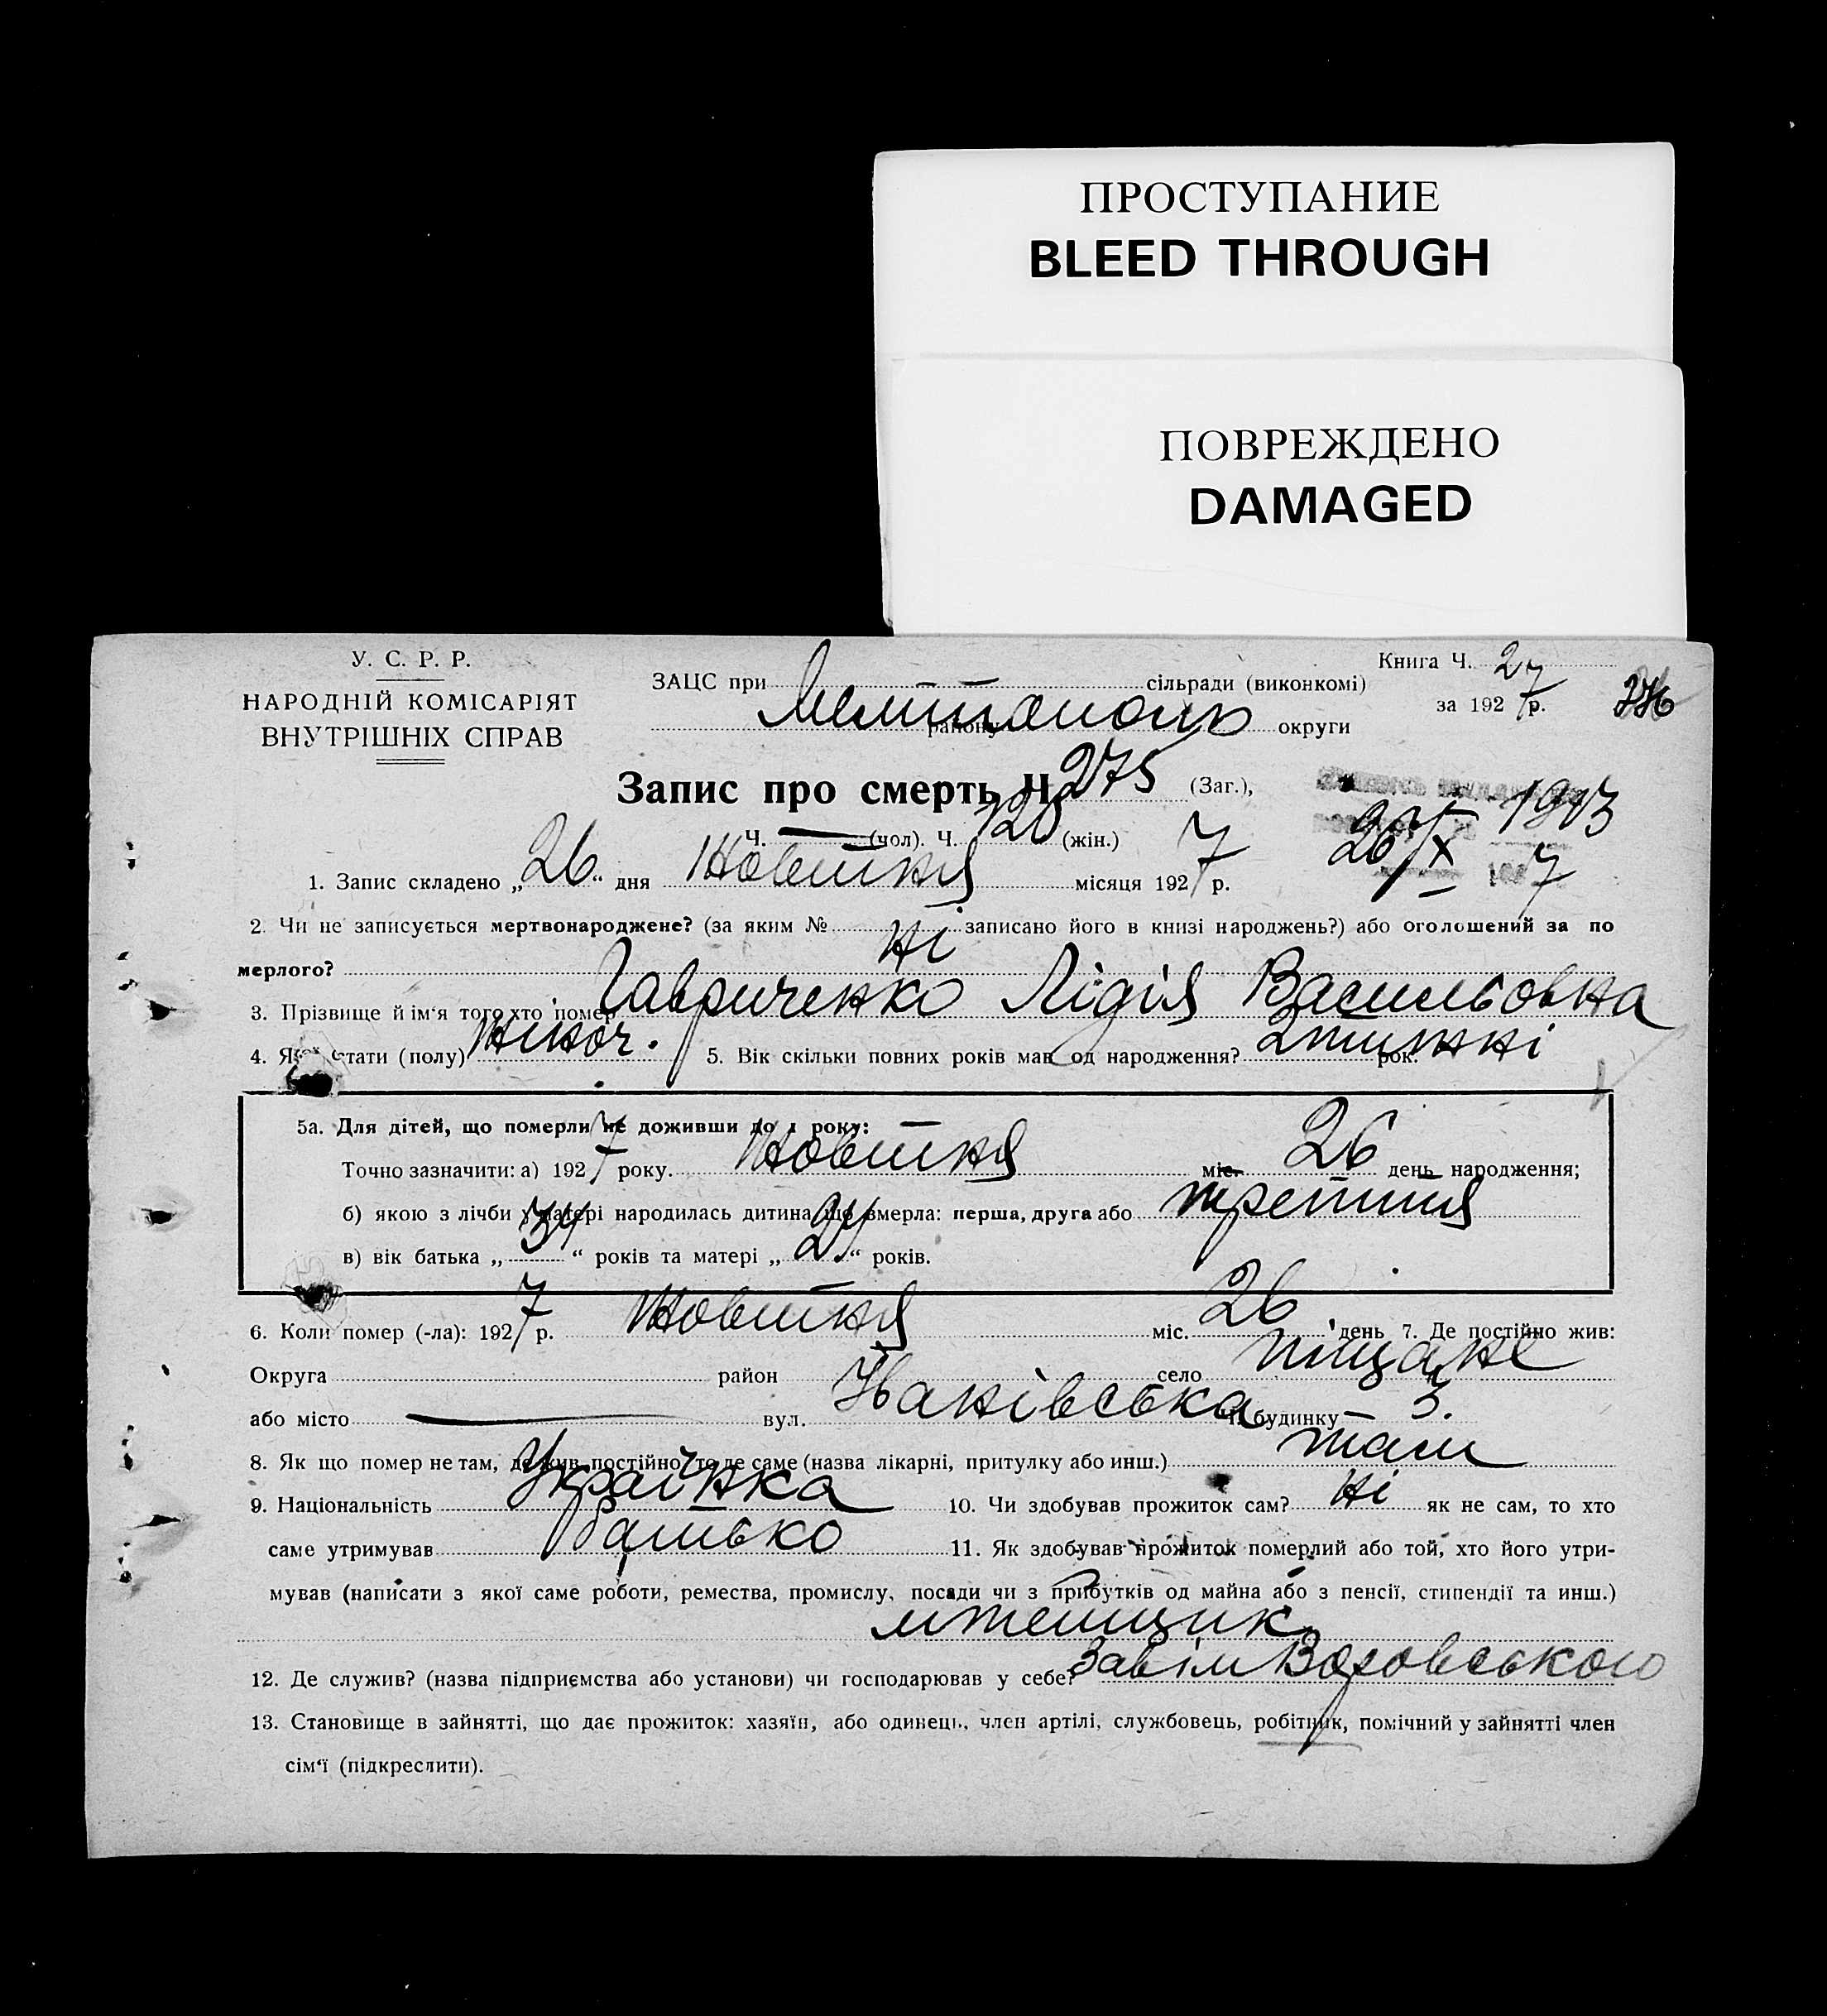 ПРОСТУПАНИЕ
BLEED THROUGH
ПОВРЕЖДЕНО
DAMAGED
У. С. Р. Р.
НАРОДНІЙ КОМІСАРІЯТ
ВНУТРІШНІХ СПРАВ
ЗАЦС при сільради (виконкомі)
Мелітополь району округи
Книга Ч. 27
за 1927 р.
276
Запис про смерть Ч. 275 (Заг.),
Ч. — (чол). Ч. 120 (жін.)
1. Запис складено „26“ дня Жовтня місяця 1927 р.
2. Чи не записується мертвонароджене? (за яким № записано його в книзі народжень?) або оголошений за по
мерлого? ні
3. Прізвище й ім'я того хто помер Гавриченко Лідія Васильовна
4. Якої стати (полу) жіноч. 5. Вік скільки повних років мав од народження? 2 тижні рок.
5а. Для дітей, що померли не доживши до 1 року:
Точно зазначити: а) 1927 року. Жовтня міс. 26 день народження;
б) якою з лічби у матері народилась дитина, що вмерла: перша, друга або третття
в) вік батька „34“ років та матері „24“ років.
6. Коли помер (-ла): 1927 р. Жовтня міс. 26 день 7. Де постійно жив:
Округа район село Піщане
або місто — вул. Ч. будинку — 3.
8. Як що помер не там, де жив постійно, то де саме (назва лікарні, притулку або инш.) там
9. Національність Українка 10. Чи здобував прожиток сам? Ні як не сам, то хто
саме утримував батько 11. Як здобував прожиток померлий або той, хто його утри-
мував (написати з якої саме роботи, ремества, промислу, посади чи з прибутків од майна або з пенсії, стипендії та инш.)
12. Де служив? (назва підприємства або установи) чи господарював у себе? Завім Воровського
13. Становище в зайнятті, що дає прожиток: хазяїн, або одинець, член артілі, службовець, робітник, помічний у зайнятті член
сім'ї (підкреслити).